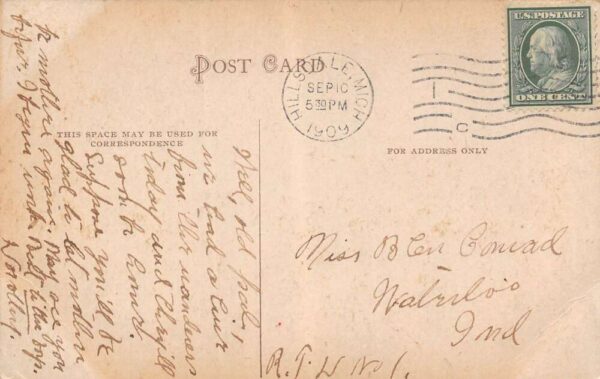 POST CARD
HILLSDALE, MICH.
SEP 10
5 30 PM
1909
U.S. POSTAGE
ONE CENT
THIS SPACE MAY BE USED FOR
CORRESPONDENCE
FOR ADDRESS ONLY
Well, old pal,
we had a
from the
today and they'll
soon be home.
Suppose you'll be
glad to let mother
be mother again. May see you
I begin work
Miss Conrad
Waterloo
Ind
R.F.D. No 1.